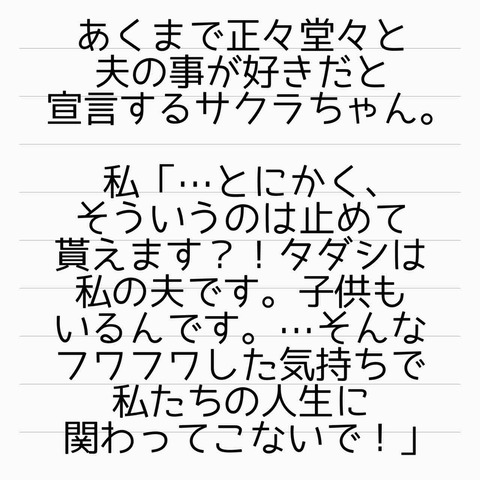 あくまで正々堂々と
夫の事が好きだと
宣言するサクラちゃん。
私「…とにかく、
そういうのは止めて
貰えます？！タダシは
私の夫です。子供も
いるんです。…そんな
フワフワした気持ちで
私たちの人生に
関わってこないで！」